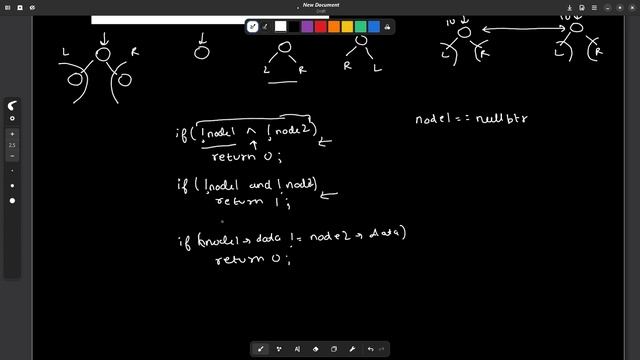 New Document
Draft
10
10
L
R
L
R
R
L
L
R
L
R
if (!node1 ^ !node2)
return 0;
node1 == nullptr
if (!node1 and !node2)
return 1;
if (node1→data != node2→data)
return 0;
2.5